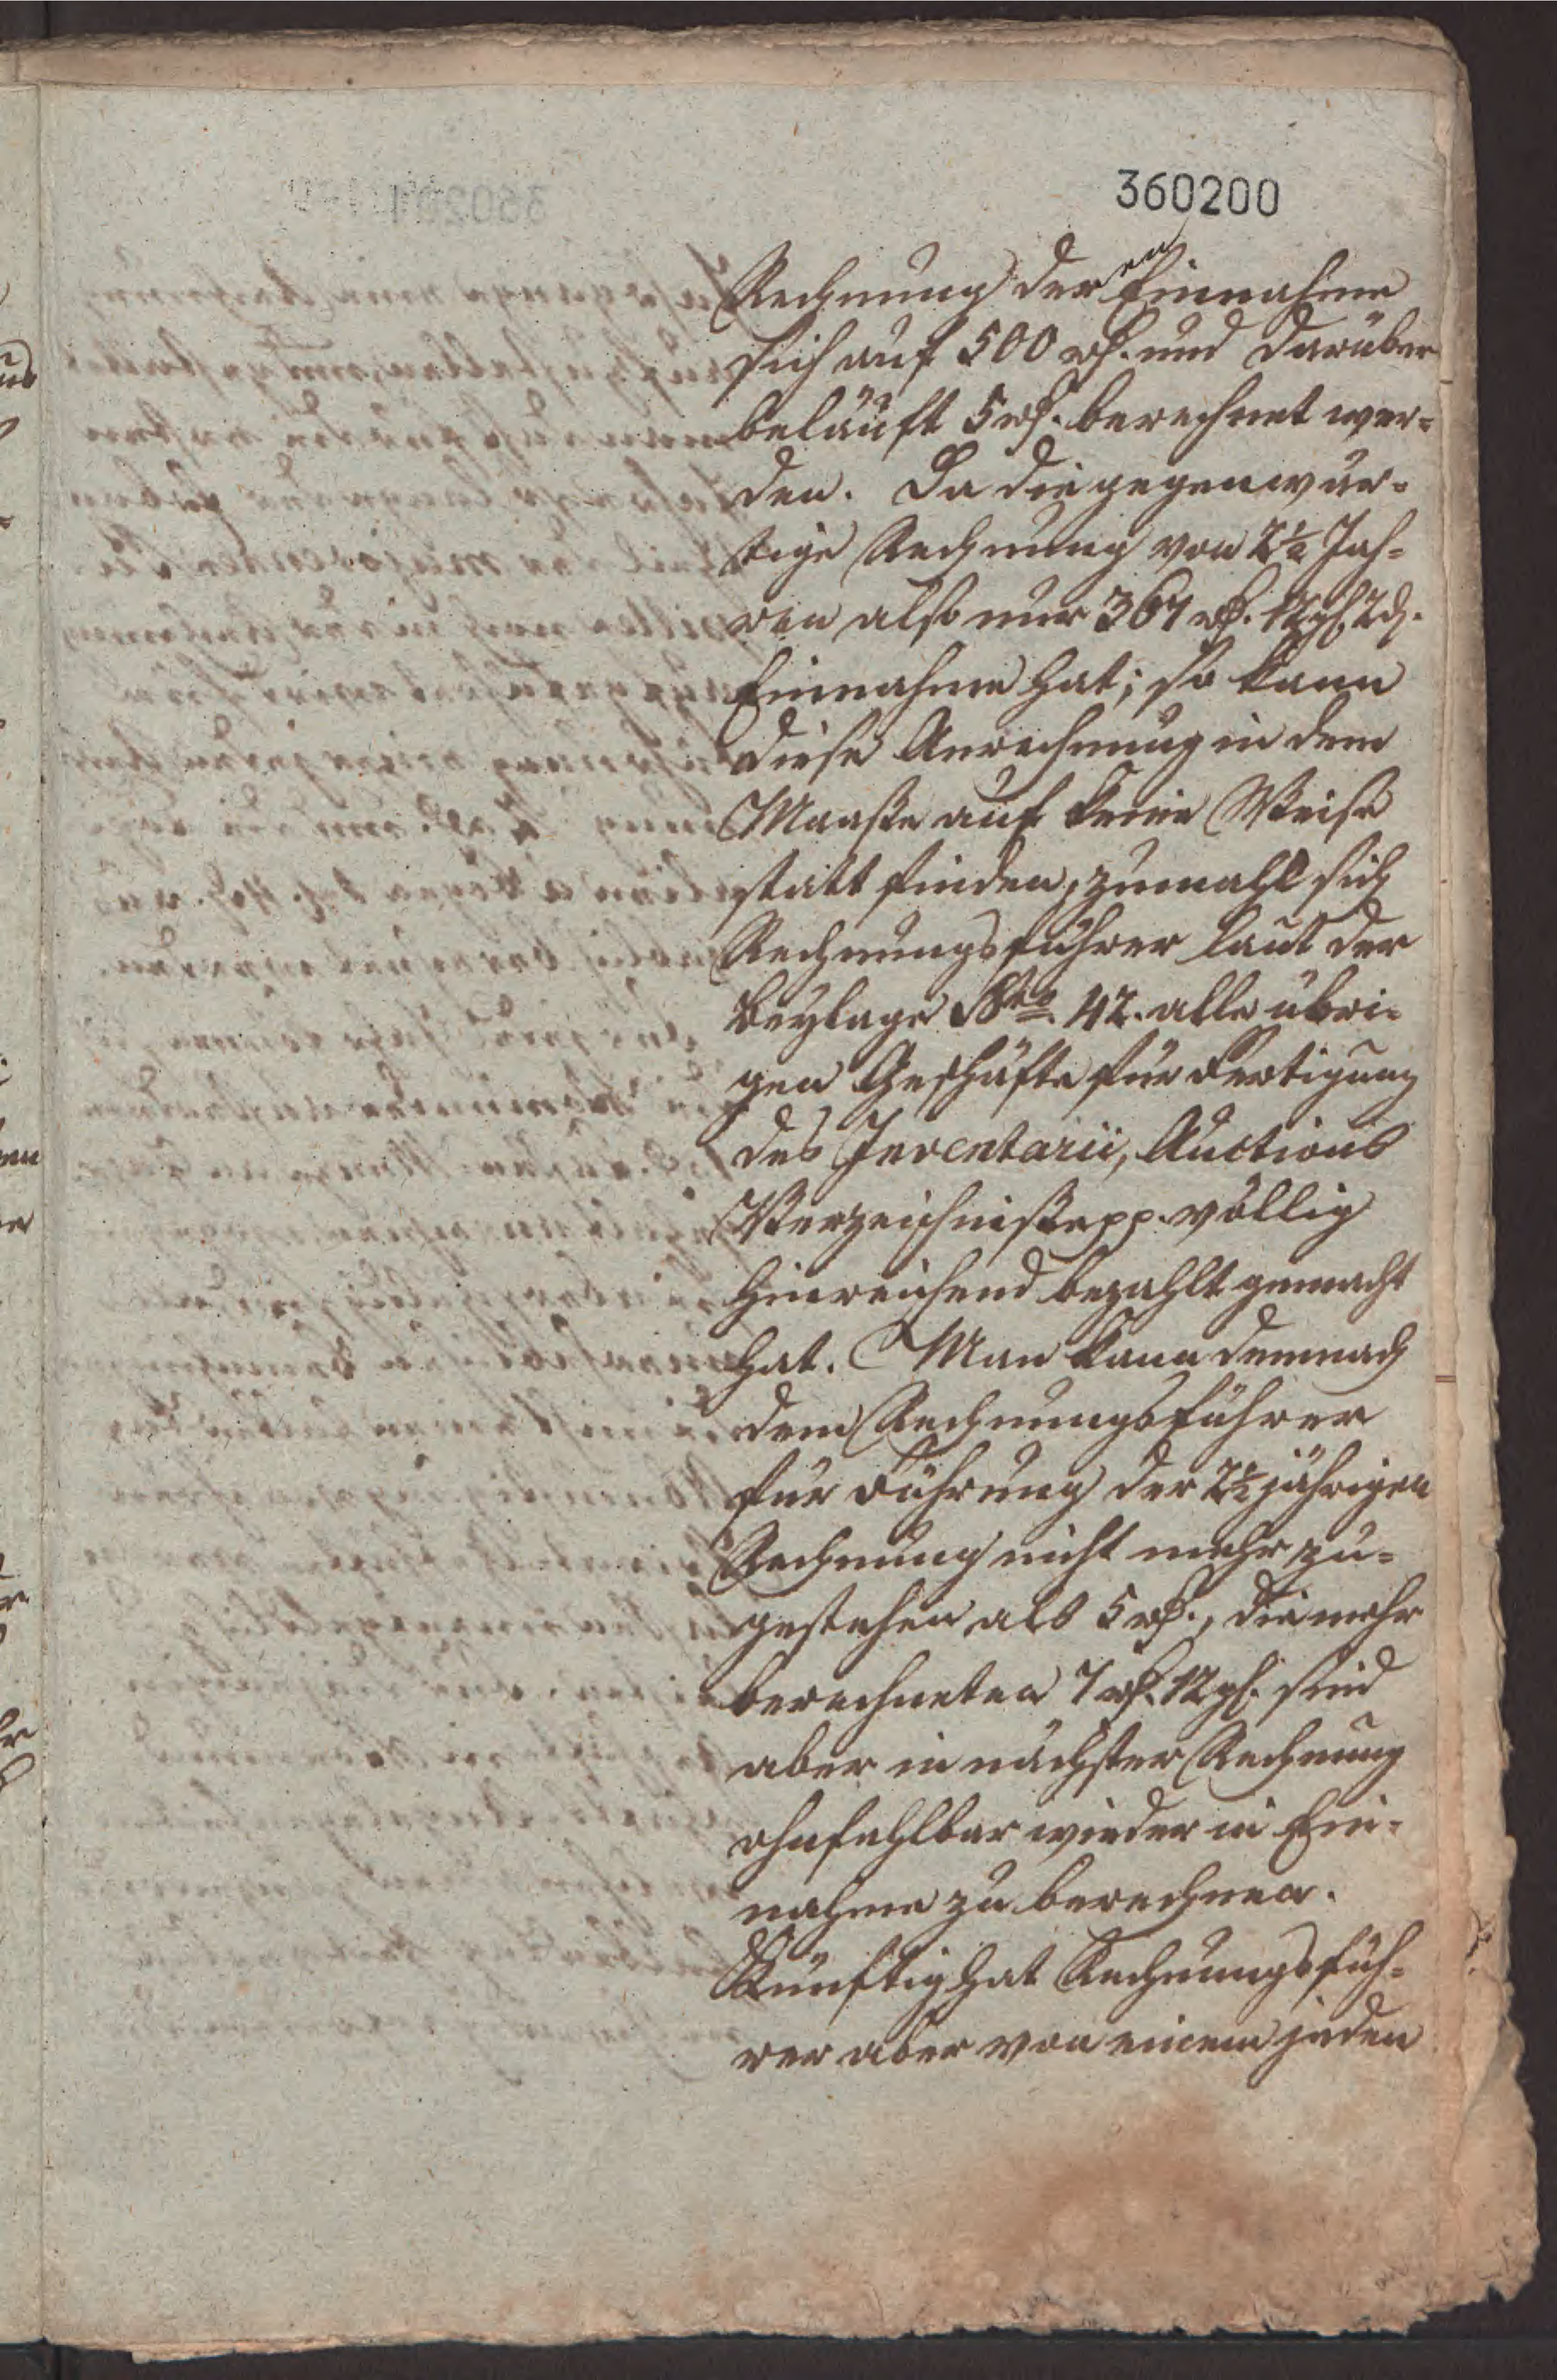 360200
Rechnung deren Einnahme
sich auf 500 rthl. und darüber
beläuft 5 rthl. berechnet wer-
den. Da die gegenwär-
tige Rechnung von 2½ Jah-
ren also nur 367 rthl. 12 gl. 2 d.
Einnahme hat; so kann
diese Anrechnung in dem
Maaße auf keine Weise
statt finden, zumahl sich
Rechnungsführer laut der
Beylage No. 42. alle übri-
gen Geschäfte für Fertigung
des Inventarii, Auctions
Verzeichniße pp. völlig
hinreichend bezahlt gemacht
hat. Man kann demnach
dem Rechnungsführer
für Führung der 2½ jährigen
Rechnung nicht mehr zu-
gestehen als 5 rthl., die mehr
berechneten 7 rthl. 12 gl. sind
aber in nächster Rechnung
ohnfehlbar wieder in Ein-
nahme zu berechnen.
Künftig hat Rechnungsfüh-
rer aber von einem jeden